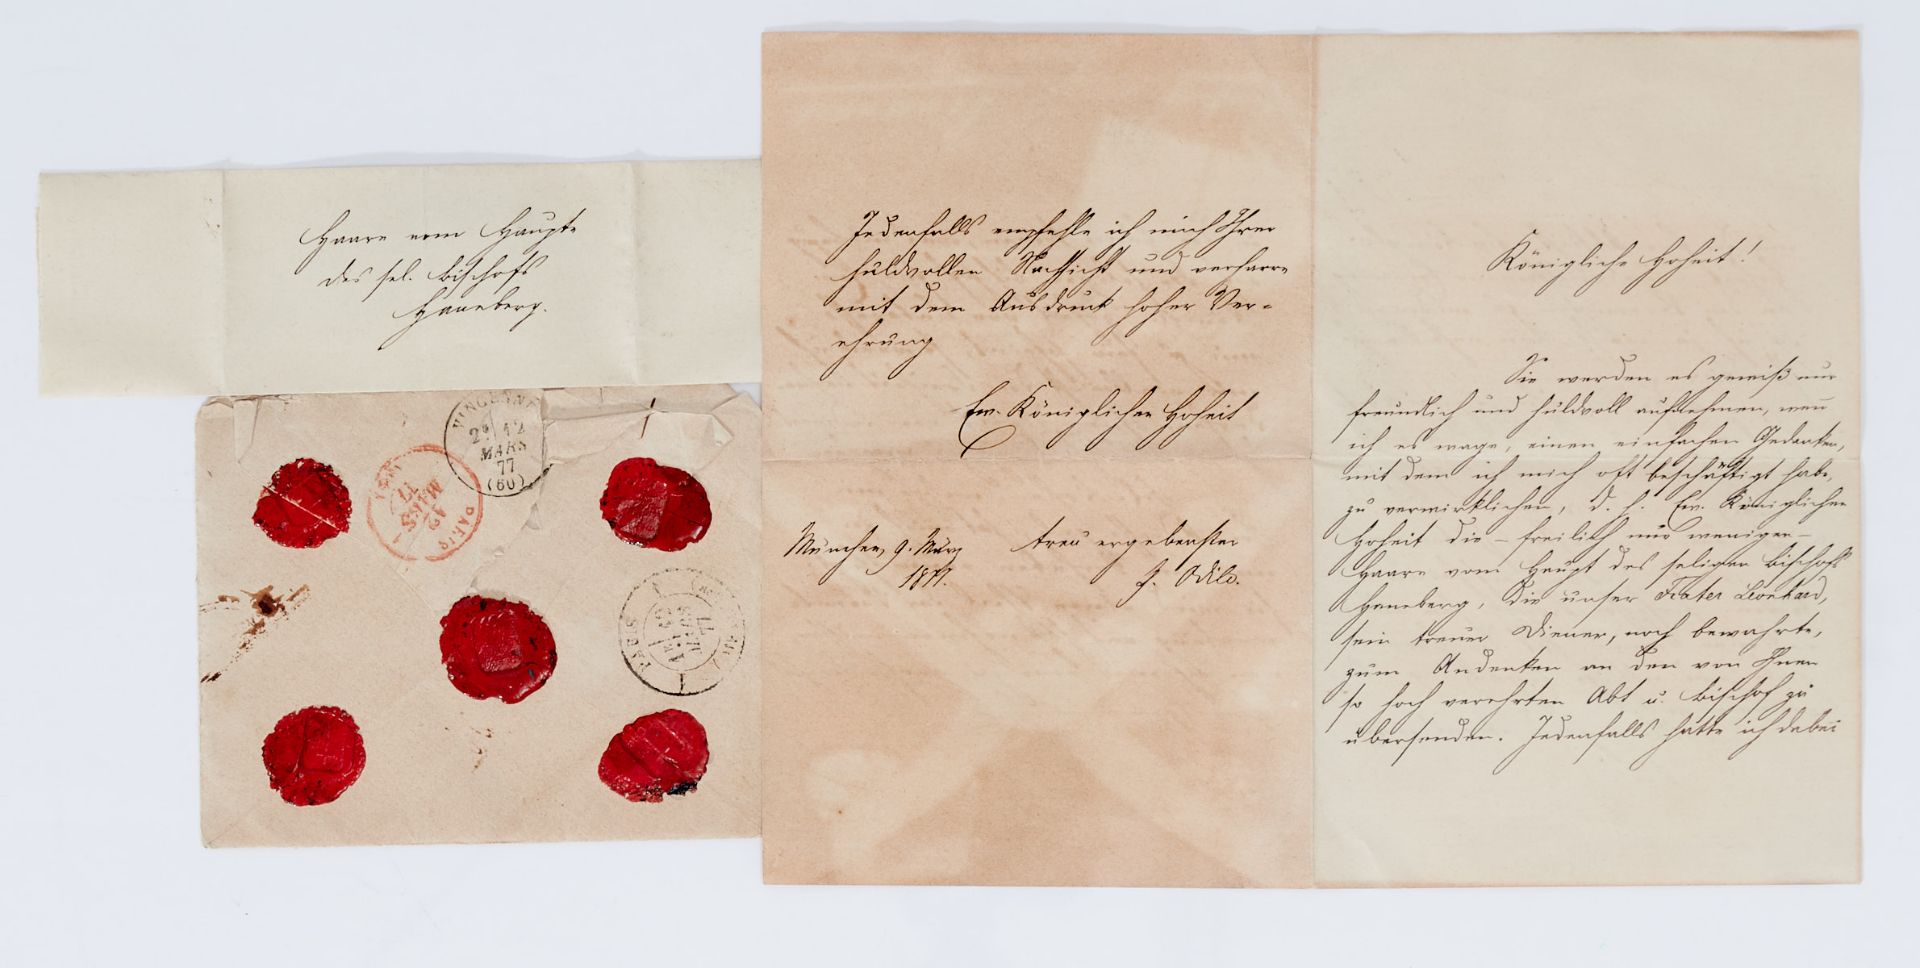 Haare vom Haupte
des sel. Bischofs
Haneberg.
VINCENNES
2E 12
MARS
77
(60)
PARIS
12
MARS
77
PARIS
MARS
77
Jedenfalls empfehle ich mich Ihrer
huldvollen Nachsicht und verharre
mit dem Ausdruck hoher Ver-
ehrung
Ew. Königlichen Hoheit
treu ergebenster
München, 9. März
1877.
P. Odilo.
Königliche Hoheit!
Sie werden es gewiß nur
freundlich und huldvoll aufnehmen, wenn
ich es wage, einen einfachen Gedanken,
mit dem ich mich oft beschäftigt habe,
zu verwirklichen, d. h. Ew. Königlichen
Hoheit die – freilich nur wenigen –
Haare vom Haupt des seligen Bischofs
Haneberg, die unser Frater Leonhard,
sein treuer Diener, noch bewahrte,
zum Andenken an den von Ihnen
so hoch verehrten Abt u. Bischof zu
übersenden. Jedenfalls hatte ich dabei